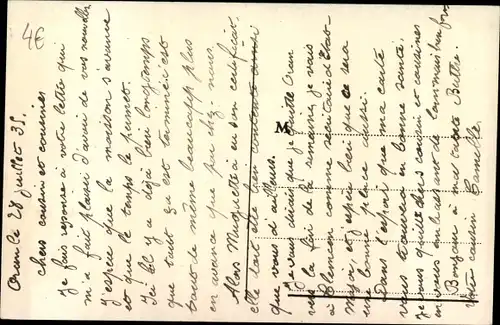 4€
Oran le 28 juillet 35.
chers cousin et cousines
Je fais reponse à votre lettre qui
m'a fait plaisir d'avoir de vos nouvelles
J'espère que la maison s'avance
et que le temps le permet.
Ici ils y a déjà bien longtemps
que tout ça est terminer ils est
tout de même beaucoup plus
en avance que par chez-nous.
Alors Musquette à eu son certificat.
elle doit être bien contente ainsi
que vous d'ailleurs.
Je vous dirais que je quitte Oran
vers la fin de la semaine, je vais
à comme secrétaire d'État-
Major, et j'espère bien que ce sera
une bonne place aussi.
Dans l'espoir que ma carte
vous trouvera en bonne santé,
Je vous quitte chers cousin et cousines
en vous embrassant de loin mais bien fort
Bonjour à ma tante
Votre cousin Camille
M